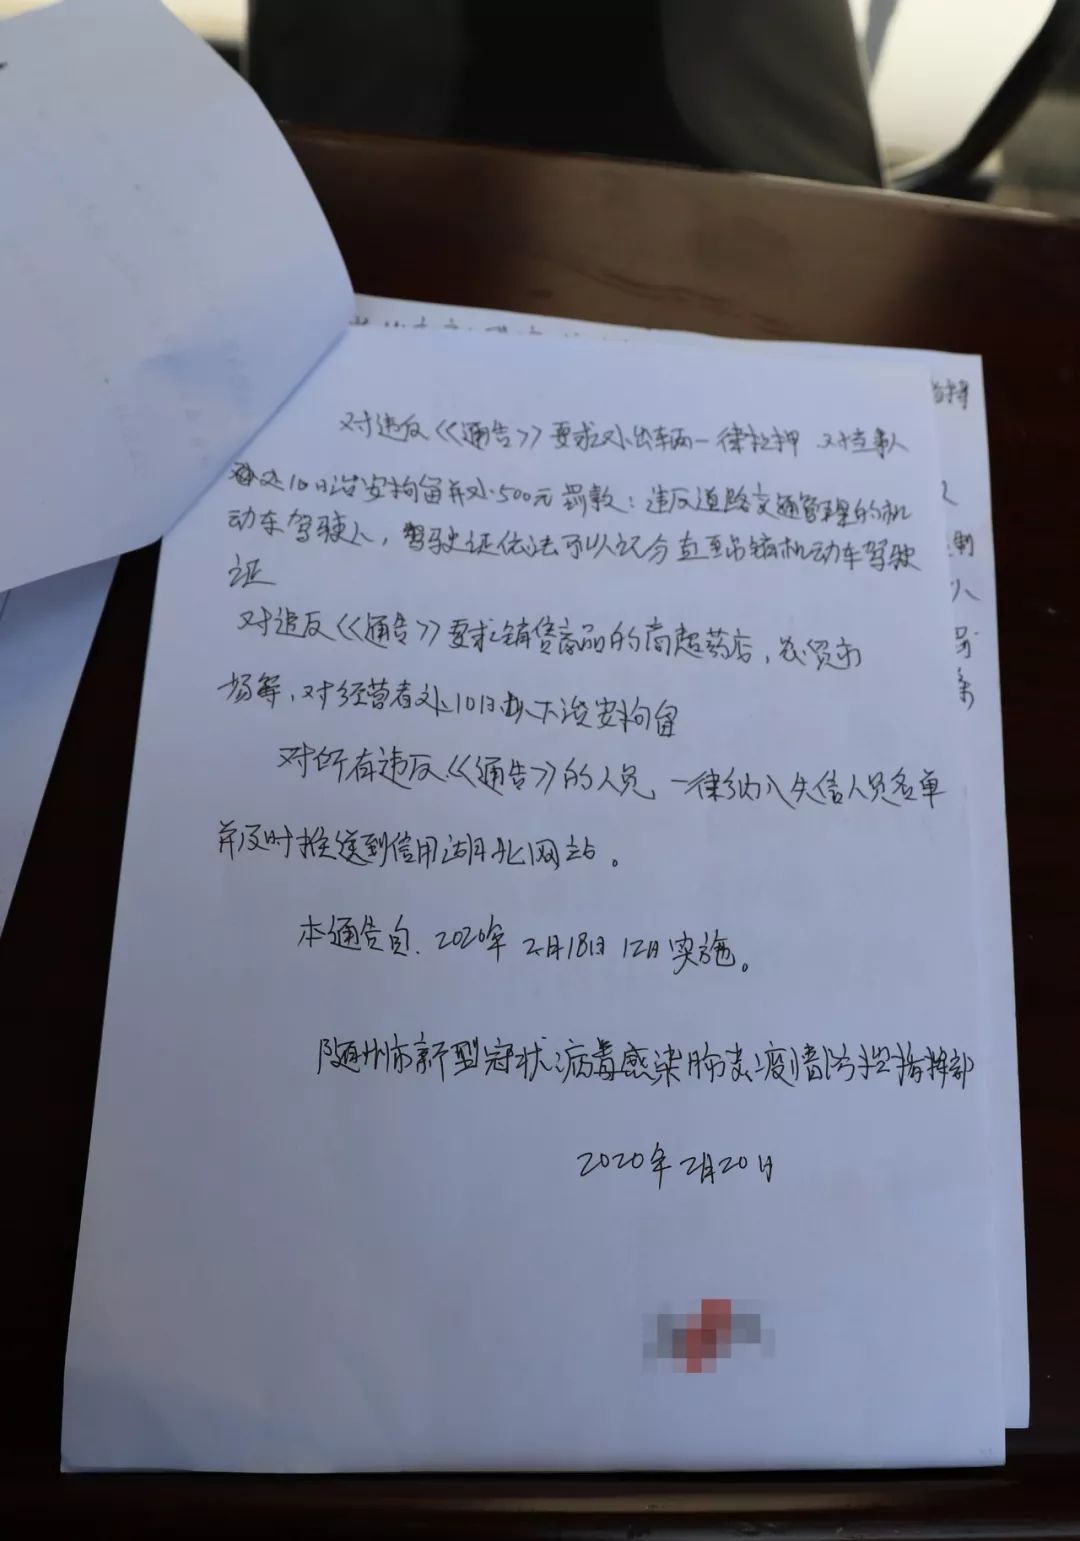 对违反《《通告》》要求外出车辆一律扣押 对当事人
处10日治安拘留并处500元罚款；违反道路交通管理的机
动车驾驶人，驾驶证依法予以记分直至吊销机动车驾驶
证
对违反《《通告》》要求销售商品的商超药店，农贸市
场等，对经营者处10日以下治安拘留
对所有违反《《通告》》的人员 一律纳入失信人员名单
并及时推送到信用湖北网站。
本通告自 2020年2月18日12日实施。
随州市新型冠状病毒感染肺炎疫情防控指挥部
2020年2月20日